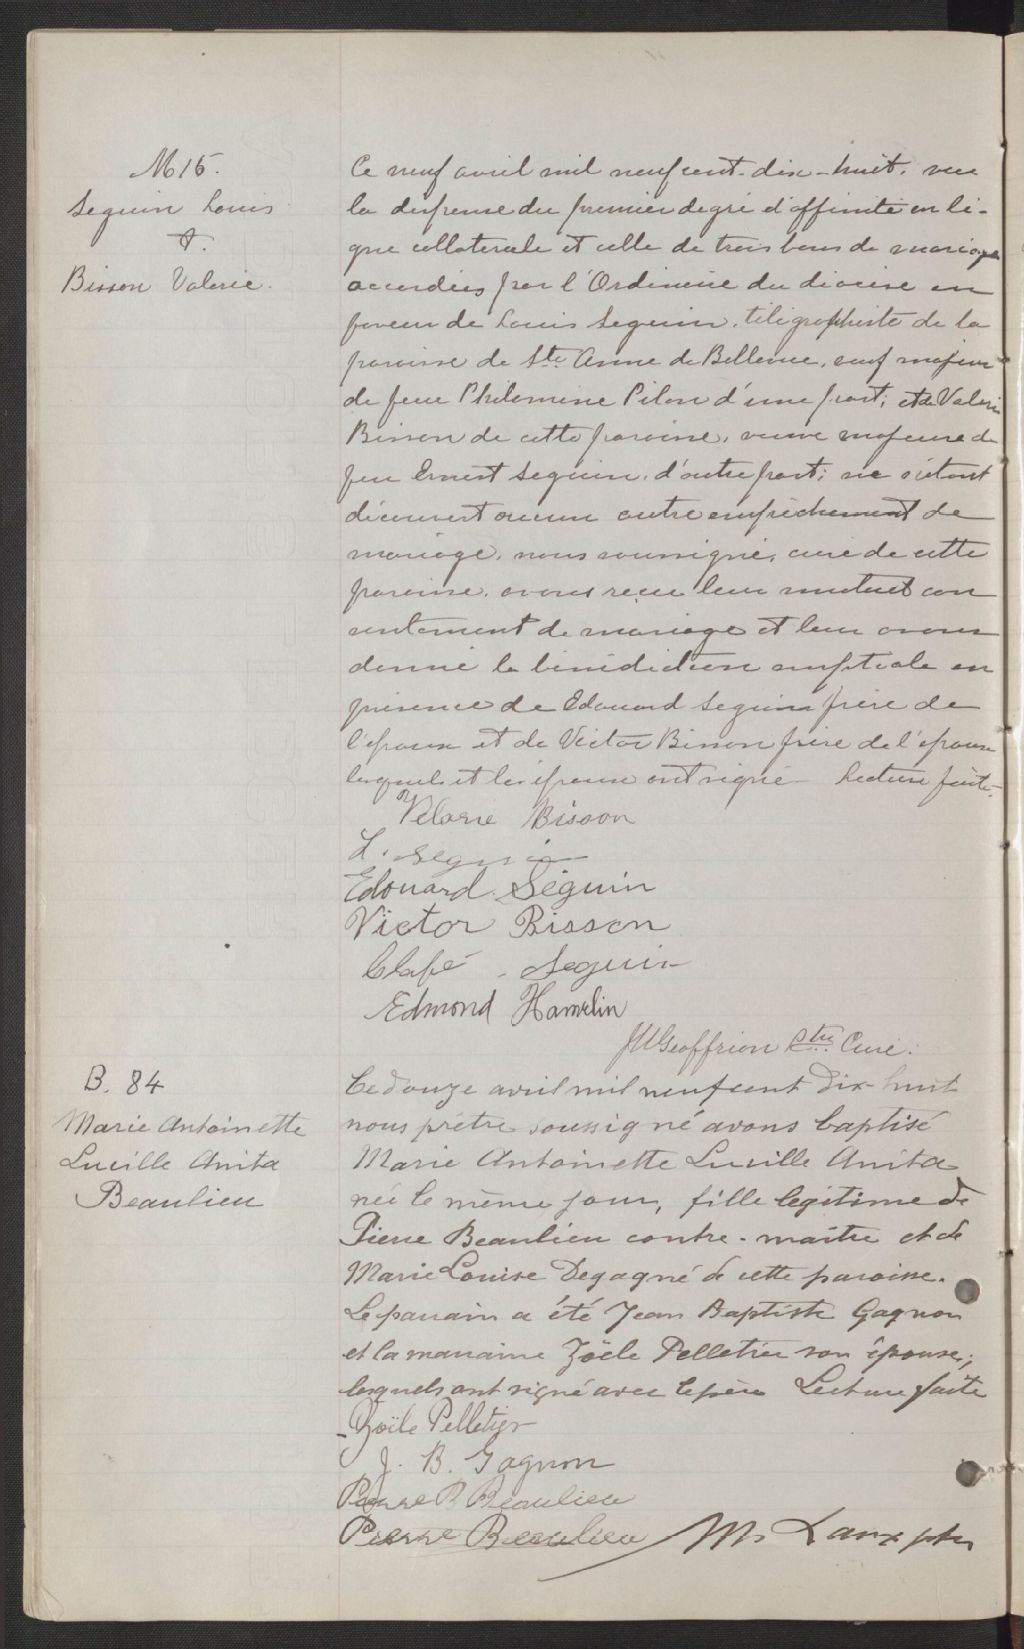 M 15.
Seguin Louis
&.
Bisson Valerie.
Ce neuf avril mil neuf cent-dix-huit, vue
la dispense du premier degré d'affinité en li-
gne collaterale et celle de trois bans de mariage
accordées par l'Ordinaire du diocèse en
faveur de Louis Seguin, télégraphiste de la
paroisse de Ste Anne de Bellevue, veuf majeur
de feue Philomène Pilon d'une part; et de Valerie
Bisson de cette paroisse, veuve majeure de
feu Ernest Seguin, d'autre part; ne s'étant
découvert aucun autre empêchement de
mariage, nous soussigné, curé de cette
paroisse, avons reçu leur mutuel con
sentement de mariage et leur avons
donné la bénédiction nuptiale en
présence de Edouard Seguin frère de
l'époux et de Victor Bisson frère de l'épouse
lesquels et les époux ont signé - Lecture faite.
Valerie Bisson
L. Seguin
Edouard Séguin
Victor Bisson
Seguin
Edmond Hamelin
Geoffrion Ptre Curé.
B. 84
Marie Antoinette
Lucille Anita
Beaulieu
Ce douze avril mil neuf cent Dix-huit
nous prêtre soussigné avons baptisé
Marie Antoinette Lucille Anita
née le même jour, fille légitime de
Pierre Beaulieu contre-maître et de
Marie Louise Degagné de cette paroisse.
Le parrain a été Jean Baptiste Gagnon
et la marraine Zoële Pelletier son épouse;
lesquels ont signé avec le père Lecture faite
Zoïle Pelletier
J. B. Gagnon
Pierre Beaulieu
Pierre Beaulieu
ptre